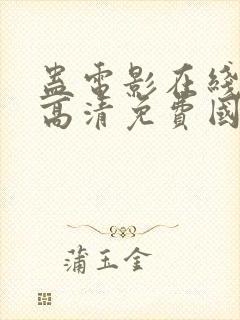 蛊電影在綫
高清免費國
蒲玉金